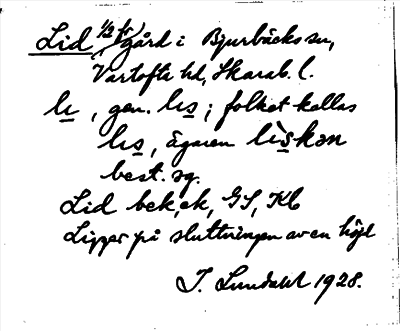 Lid 1/2 fr gård i Bjurbäcks sn,
Vartofta hd, Skarab. l.
li, gen. lis; folket kallas
lis, ägaren liskən
best. sg.
Lid bek, ek, GS, Kb
Ligger på sluttningen av en höjd
I. Lundahl 1928.